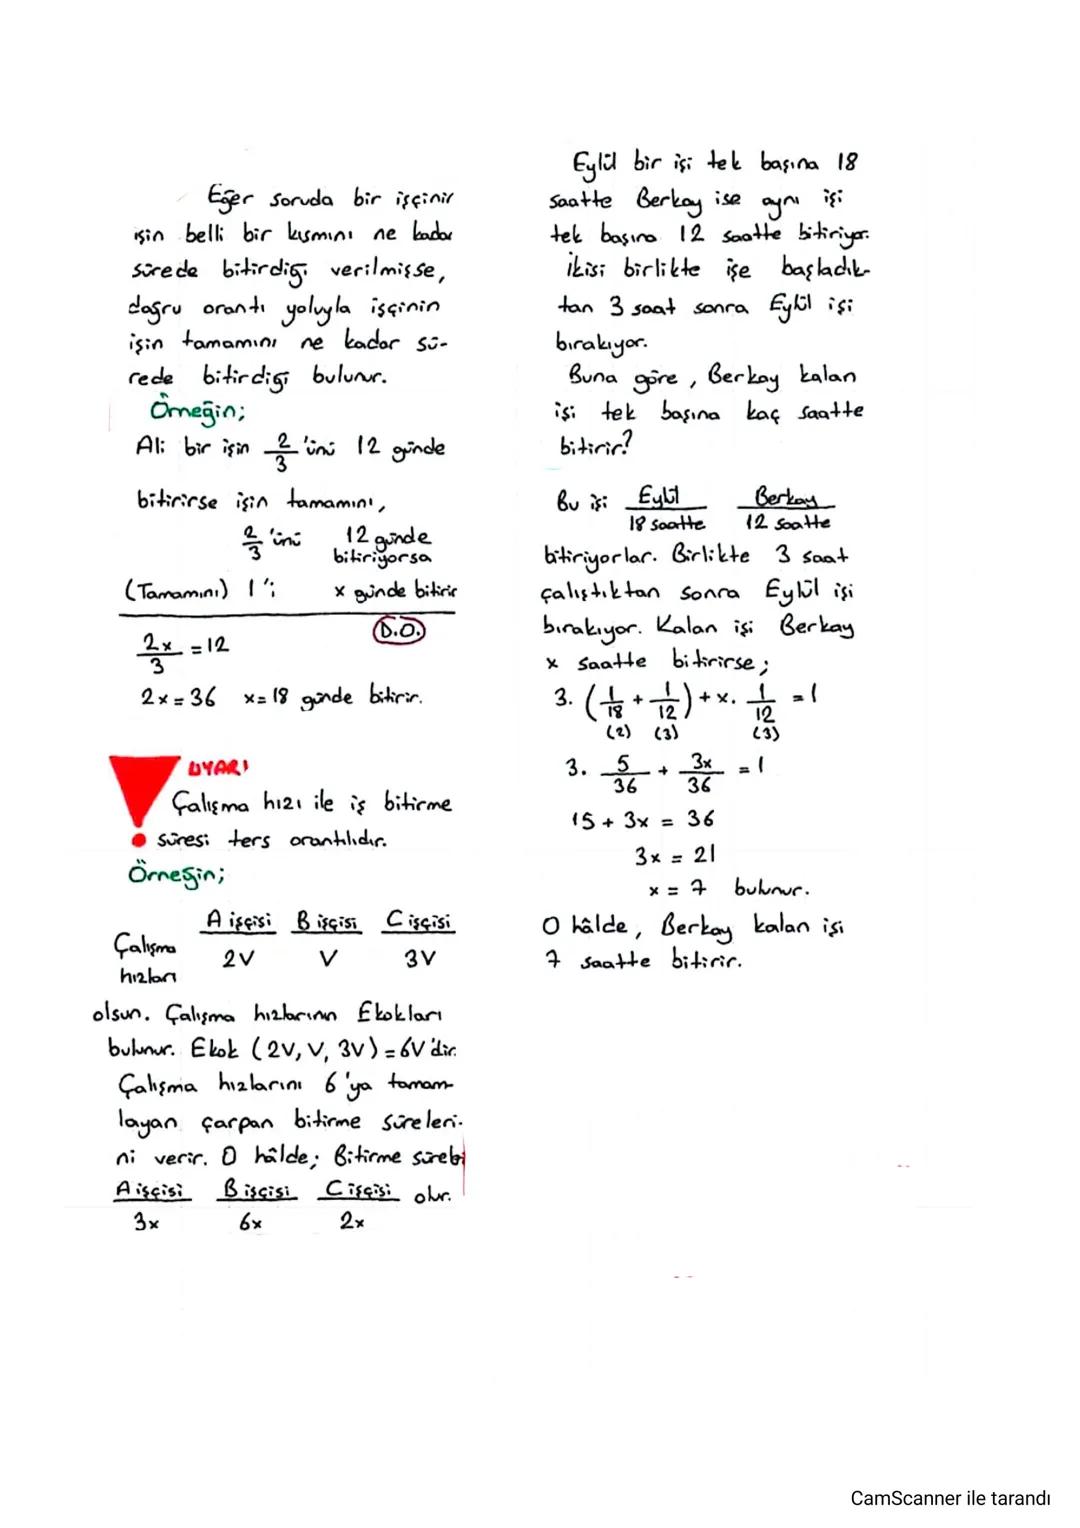 Eğer soruda bir işçinin
işin belli bir kısmını ne kadar
sürede bitirdiği verilmişse,
doğru orantı yoluyla işçinin
işin tamamını ne kadar sü-
rede bitirdiği bulunur.
Örneğin;
Ali bir işin 2/3 'ünü 12 günde
bitirirse işin tamamını,
2/3 'ünü 12 günde bitiriyorsa
(Tamamını) 1'i x günde bitirir
D.O.
2x/3 = 12
2x = 36 x = 18 günde bitirir.
UYARI
Çalışma hızı ile iş bitirme
süresi ters orantılıdır.
Örneğin;
A işçisi B işçisi C işçisi
Çalışma hızları 2V V 3V
olsun. Çalışma hızlarının Ekokları
bulunur. Ekok (2V, V, 3V) = 6V'dir.
Çalışma hızlarını 6'ya tamam-
layan çarpan bitirme süreleri-
ni verir. O hâlde; Bitirme süresi
A işçisi B işçisi C işçisi olur.
3x 6x 2x
Eylül bir işi tek başına 18
saatte Berkay ise aynı işi
tek başına 12 saatte bitiriyor.
İkisi birlikte işe başladık-
tan 3 saat sonra Eylül işi
bırakıyor.
Buna göre, Berkay kalan
işi tek başına kaç saatte
bitirir?
Bu işi Eylül Berkay
18 saatte 12 saatte
bitiriyorlar. Birlikte 3 saat
çalıştıktan sonra Eylül işi
bırakıyor. Kalan işi Berkay
x saatte bitirirse;
3. (1/18 + 1/12) + x. 1/12 = 1
(2) (3) (3)
3. 5/36 + 3x/36 = 1
15 + 3x = 36
3x = 21
x = 7 bulunur.
O hâlde, Berkay kalan işi
7 saatte bitirir.
CamScanner ile tarandı